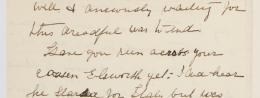 well & anxiously waiting for
this dreadful war to end.
Have you run across your
cousin Elsworth yet - I hear
he started for Italy but was